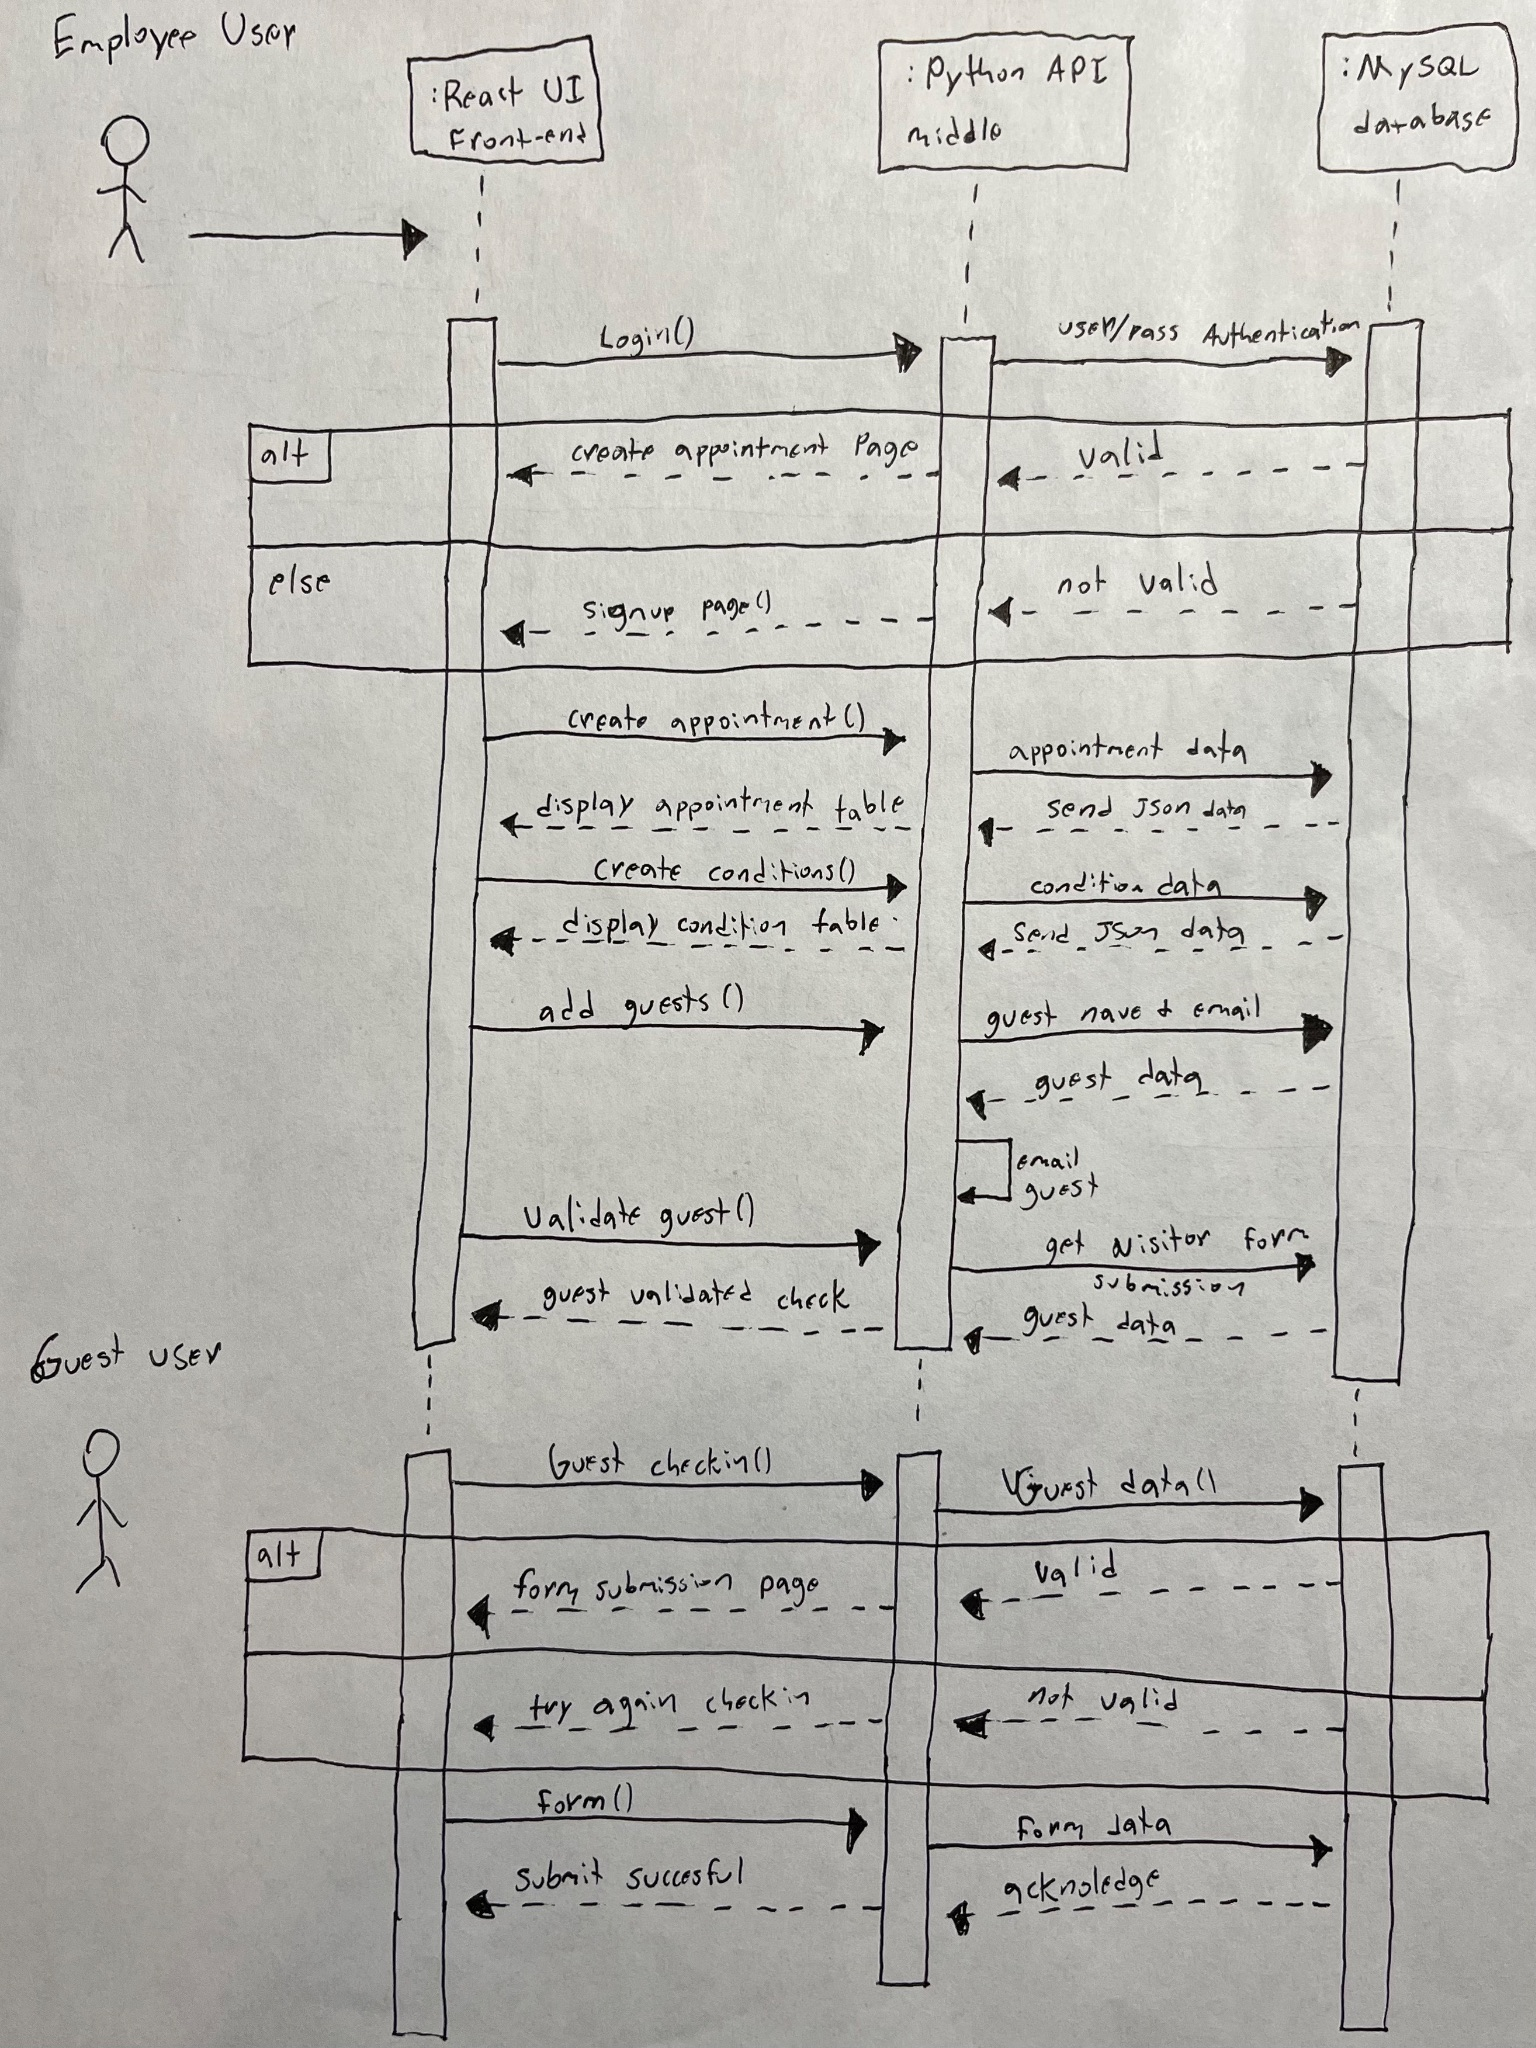 Employee User
:React UI
Front-end
:Python API
middle
:MySQL
database
Login()
user/pass Authentication
alt
create appointment Page
valid
else
signup page()
not valid
create appointment()
appointment data
display appointment table
send Json data
create conditions()
condition data
display condition table
send Json data
add guests()
guest nave & email
guest data
email
guest
Validate guest()
get visitor form
submission
guest validated check
guest data
Guest user
Guest checkin()
Guest data()
alt
form submission page
valid
try again checkin
not valid
form()
form data
submit succesful
acknoledge